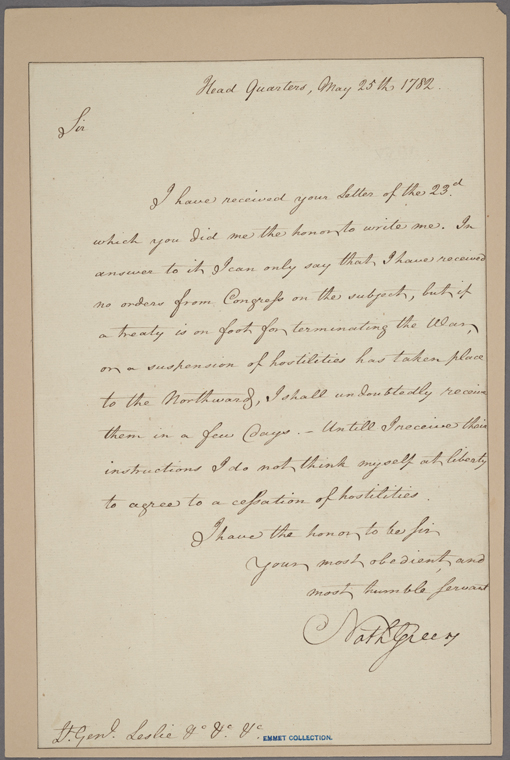 Head Quarters, May 25th 1782.
Sir
I have received your Letter of the 23.d
which you did me the honor to write me. In
answer to it I can only say that I have received
no orders from Congress on the subject, but if
a treaty is on foot for terminating the War,
or a suspension of hostilities has taken place
to the Northward, I shall undoubtedly receive
them in a few days. – Untill I receive their
instructions I do not think myself at liberty
to agree to a cessation of hostilities.
I have the honor to be Sir
Your most obedient and
most humble servant
Nath Greene
Lt. Genl. Leslie &c &c. &c.
EMMET COLLECTION.